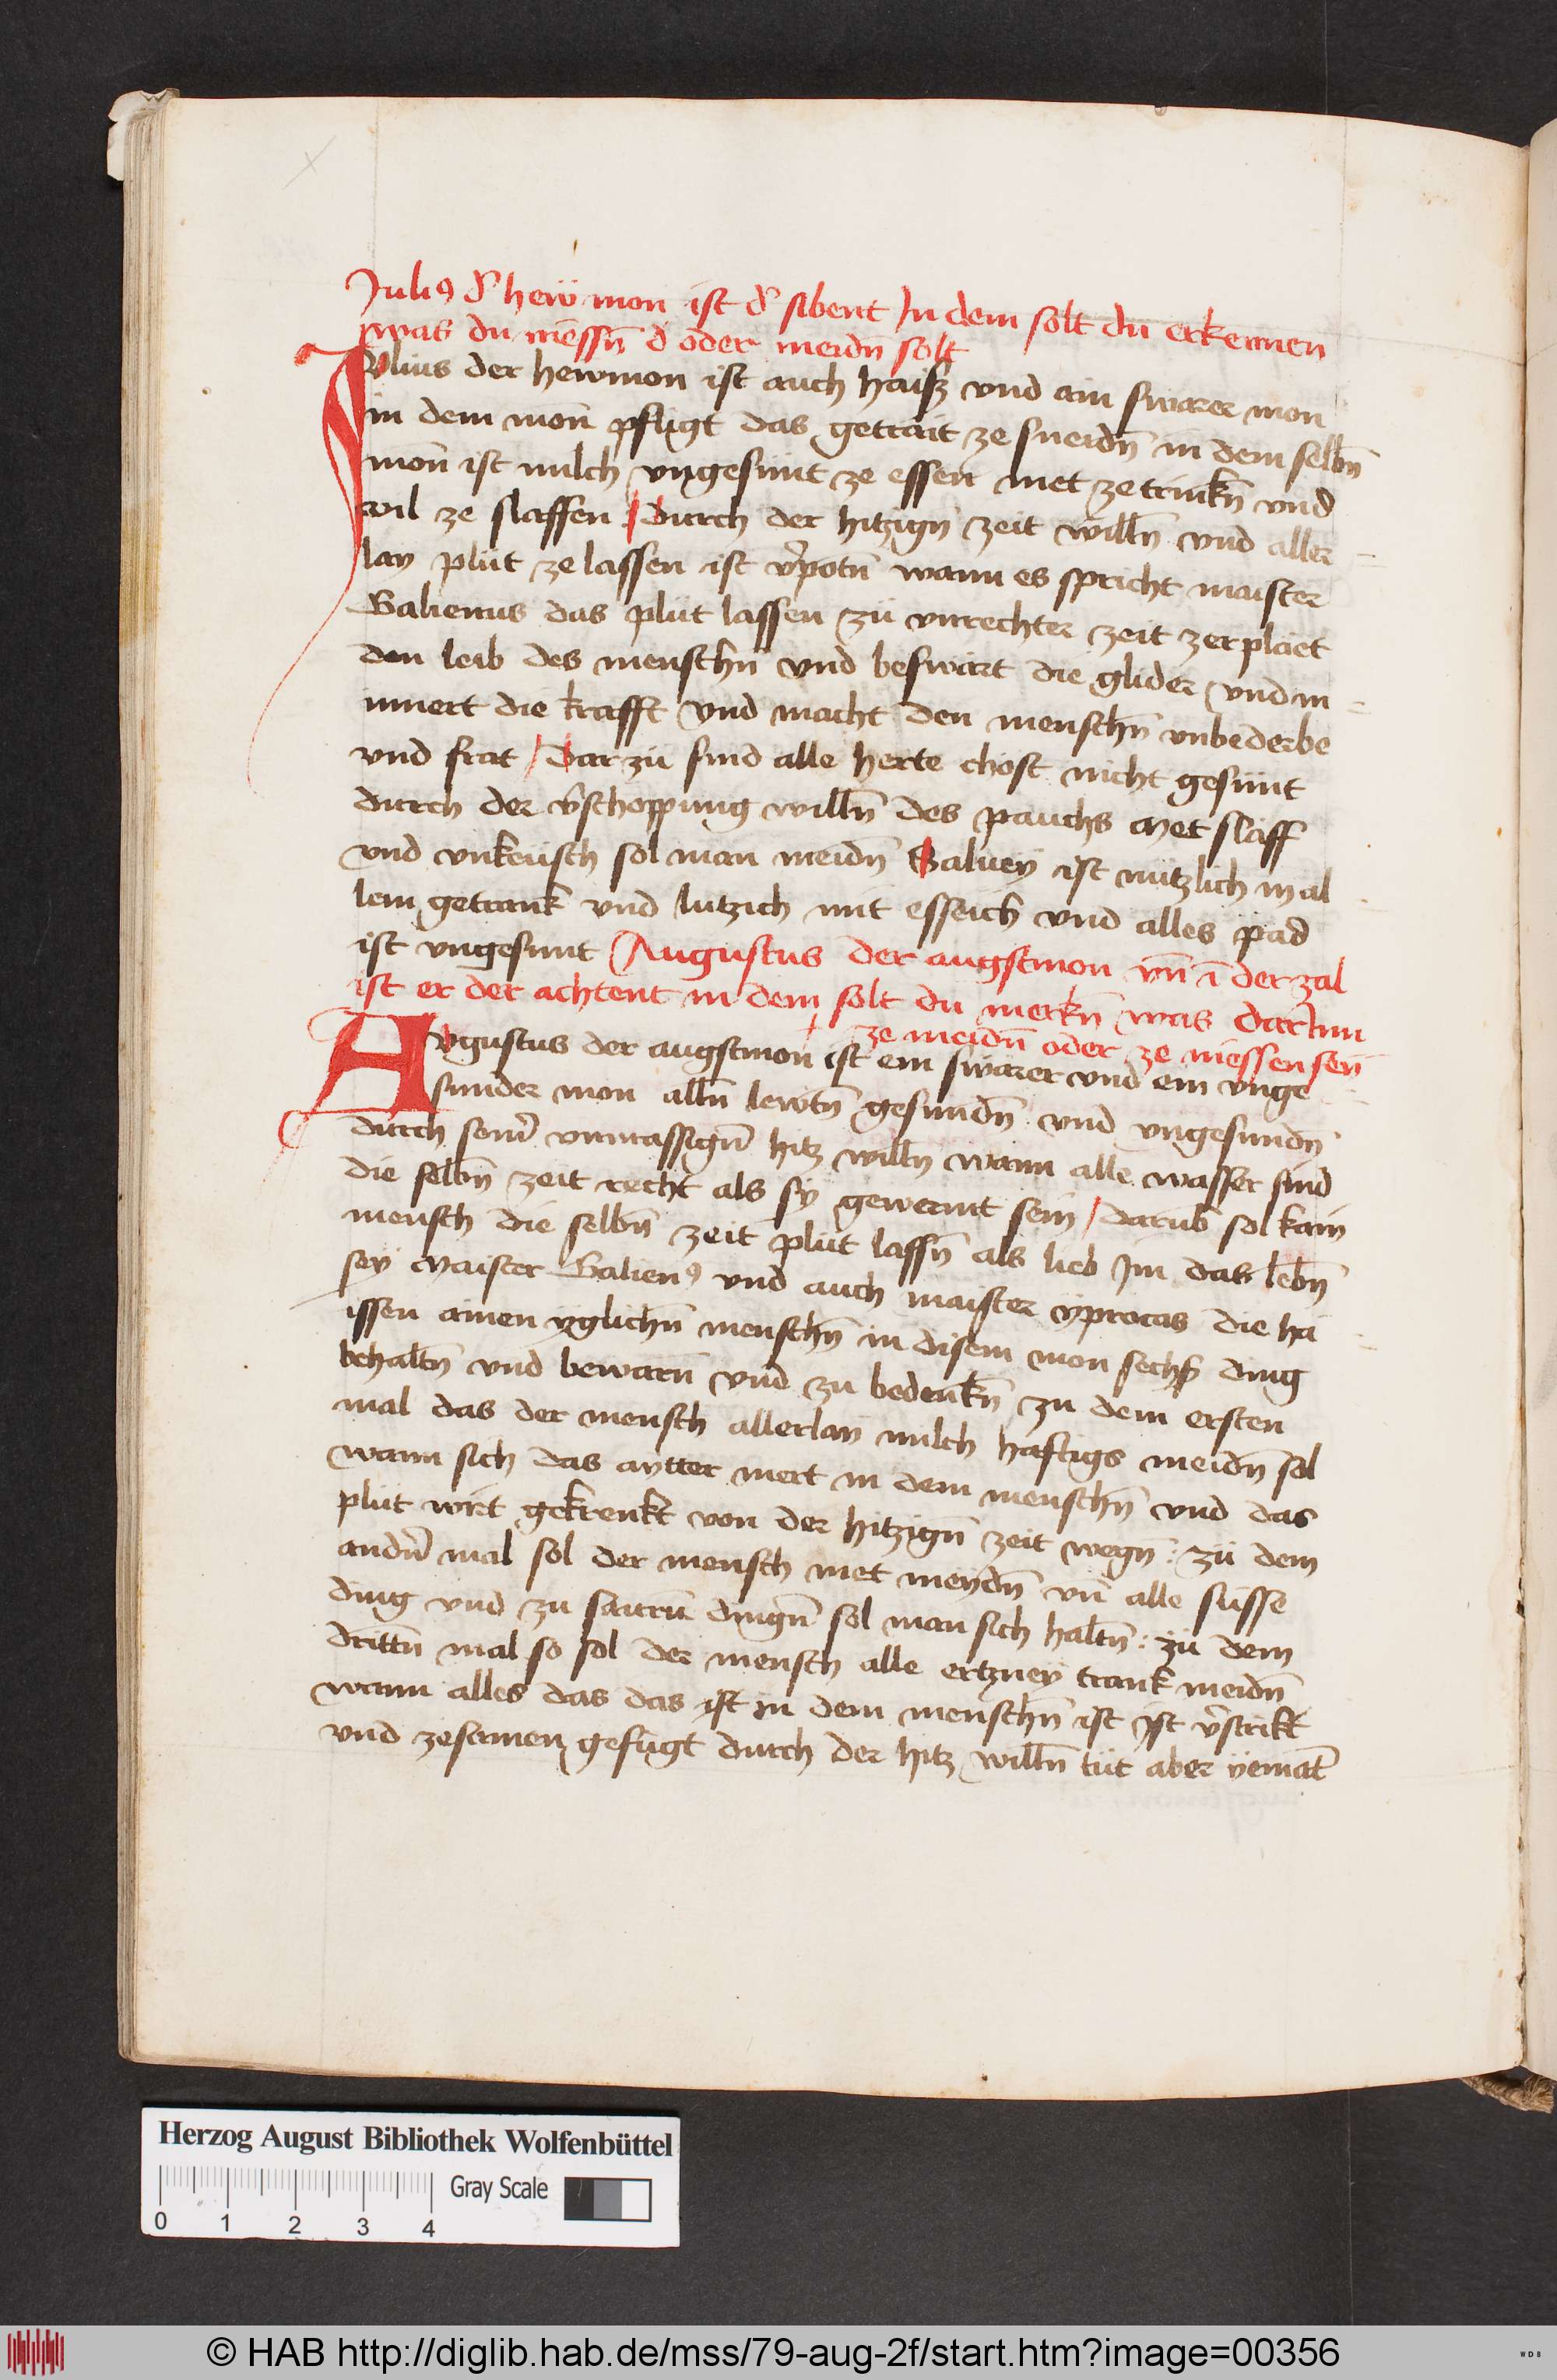 Juliꝰ dˀ heẅ mon ist dˀ sibent In dem solt du erkennen
was du niessn̄ d oder meidn̄ solt
Julius der hewmon ist auch haisz vnd ain swarer mon
in dem mon̄ pfligt das getrait ze sneidn̄ in dem selbn̄
mon̄ ist milch vngesünt ze essen met ze trinkn̄ vnd
vil ze slaffen / Durch der hitzign̄ zeit willn̄ vnd aller
lay plüt ze lassen ist v̄potn̄ wann es spricht maister
Galienus das plüt lassen zü vnrechter zeit zerpläet
den leib des menschn̄ vnd beswärt die glider vnd m
innert die krafft vnd macht den menschn̄ vnbederbe
vnd frat / Dar zü sind alle herte chost nicht gesünt
durch der v̄schoppung willn̄ des pauchs Met slaff
vnd vnkeüsch sol man meidn̄ Saluey ist nützlich in al
lem getrank vnd lutzich mit esseich vnd alles päd
ist vngesunt Augustus der augstmon vn̄ ī der zal
ist er der achtent in dem solt du merkn̄ was darInn
ze meidn̄ oder ze niessen seÿ
Avgustus der augstmon ist ein swarer vnd ein vnge
sunder mon alln̄ lewtn̄ gesundn̄ vnd vngesundn̄
durch seinˀ vnmassign̄ hitz willn̄ wann alle wasser sind
die selbn̄ zeit recht als sy gewermt sein / darūb sol kain
mensch die selbn̄ zeit plüt lassn̄ als lieb Im das lebn̄
sey Maister Galienꝰ vnd auch maister ÿprocas die ha
issen ainen yglichn̄ menschn̄ in disem mon sechs ding
behaltn̄ vnd bewarn̄ vnd zu bedenkn̄ zu dem ersten
mal das der mensch allerlay milch haftigs meidn̄ sol
wann sich das aytter mert in dem menschn̄ vnd das
plüt wirt gekrenkt von der hitzign̄ zeit wegn̄ : zü dem
andn̄ mal sol der mensch met meydn̄ vn̄ alle süsse
ding vnd zu sawrn̄ dingn̄ sol man sich haltn̄ : zü dem
drittn̄ mal so sol der mensch alle ertzney trank meidn̄
wann alles das das ist in dem menschn̄ ist ist v̄strikt
vnd zesamen gefügt durch der hitz willn̄ tüt aber yemāt
Herzog August Bibliothek Wolfenbüttel
Gray Scale
0 1 2 3 4
© HAB http://diglib.hab.de/mss/79-aug-2f/start.htm?image=00356
WDB